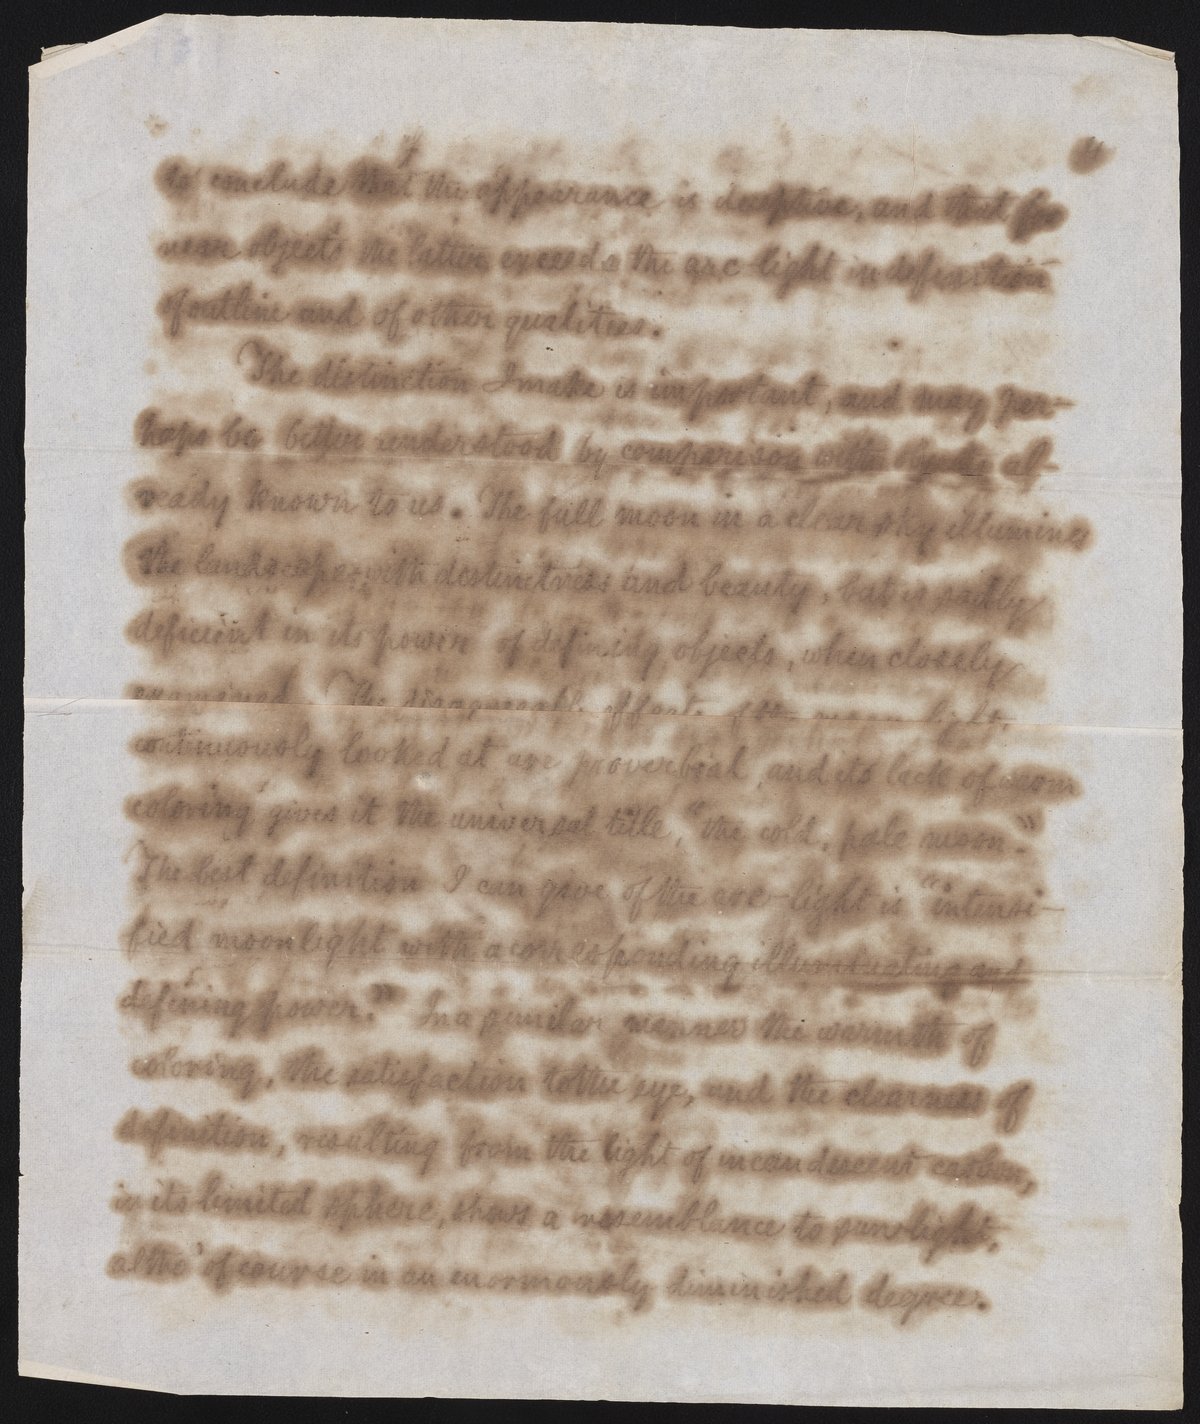 to conclude that the appearance is deceptive, and that for
near objects the latter exceeds the arc-light in definition
of outline and of other qualities.
The distinction I make is important, and may per-
haps be better understood by comparison with objects al-
ready known to us. The full moon in a clear sky illumines
the landscape with distinctness and beauty, but is sadly
deficient in its power of defining objects, when closely
examined. The disagreeable effects of the moon light,
continuously looked at are proverbial, and its lack of warm
coloring gives it the universal title, "the cold, pale moon."
The best definition I can give of the arc-light is "intensi-
fied moonlight with a corresponding illuminating and
defining power." In a similar manner the warmth of
coloring, the satisfaction to the eye, and the clearness of
definition, resulting from the light of incandescent carbon,
in its limited sphere, shows a resemblance to sun-light,
altho' of course in an enormously diminished degree.